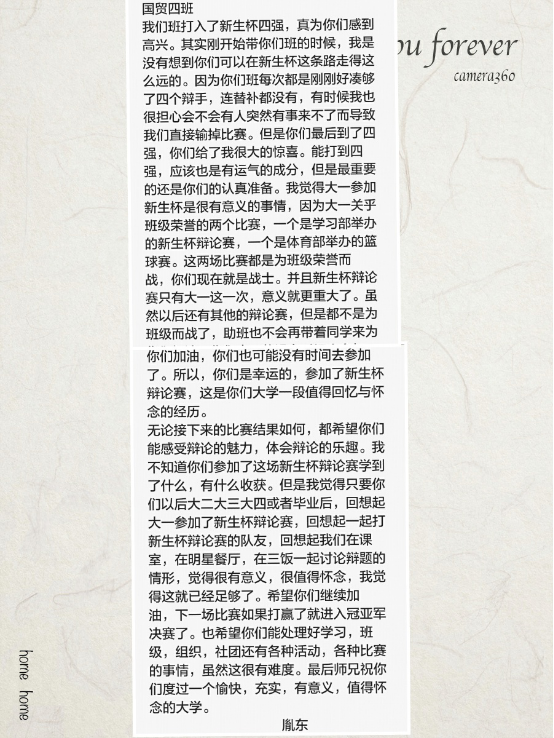 国贸四班
我们班打入了新生杯四强，真为你们感到
高兴。其实刚开始带你们班的时候，我是
没有想到你们可以在新生杯这条路走得这
么远的。因为你们班每次都是刚刚好凑够
了四个辩手，连替补都没有，有时候我也
很担心会不会有人突然有事来不了而导致
我们直接输掉比赛。但是你们最后到了四
强，你们给了我很大的惊喜。能打到四
强，应该也是有运气的成分，但是最重要
的还是你们的认真准备。我觉得大一参加
新生杯是很有意义的事情，因为大一关乎
班级荣誉的两个比赛，一个是学习部举办
的新生杯辩论赛，一个是体育部举办的篮
球赛。这两场比赛都是为班级荣誉而
战，你们现在就是战士。并且新生杯辩论
赛只有大一这一次，意义就更重大了。虽
然以后还有其他的辩论赛，但是都不是为
班级而战了，助班也不会再带着同学来为
你们加油，你们也可能没有时间去参加
了。所以，你们是幸运的，参加了新生杯
辩论赛，这是你们大学一段值得回忆与怀
念的经历。
无论接下来的比赛结果如何，都希望你们
能感受辩论的魅力，体会辩论的乐趣。我
不知道你们参加了这场新生杯辩论赛学到
了什么，有什么收获。但是我觉得只要你
们以后大二大三大四或者毕业后，回想起
大一参加了新生杯辩论赛，回想起一起打
新生杯辩论赛的队友，回想起我们在课
室，在明星餐厅，在三饭一起讨论辩题的
情形，觉得很有意义，很值得怀念，我觉
得这就已经足够了。希望你们继续加
油，下一场比赛如果打赢了就进入冠亚军
决赛了。也希望你们能处理好学习，班
级，组织，社团还有各种活动，各种比赛
的事情，虽然这很有难度。最后师兄祝你
们度过一个愉快，充实，有意义，值得怀
念的大学。
胤东
ou forever
camera360
home home